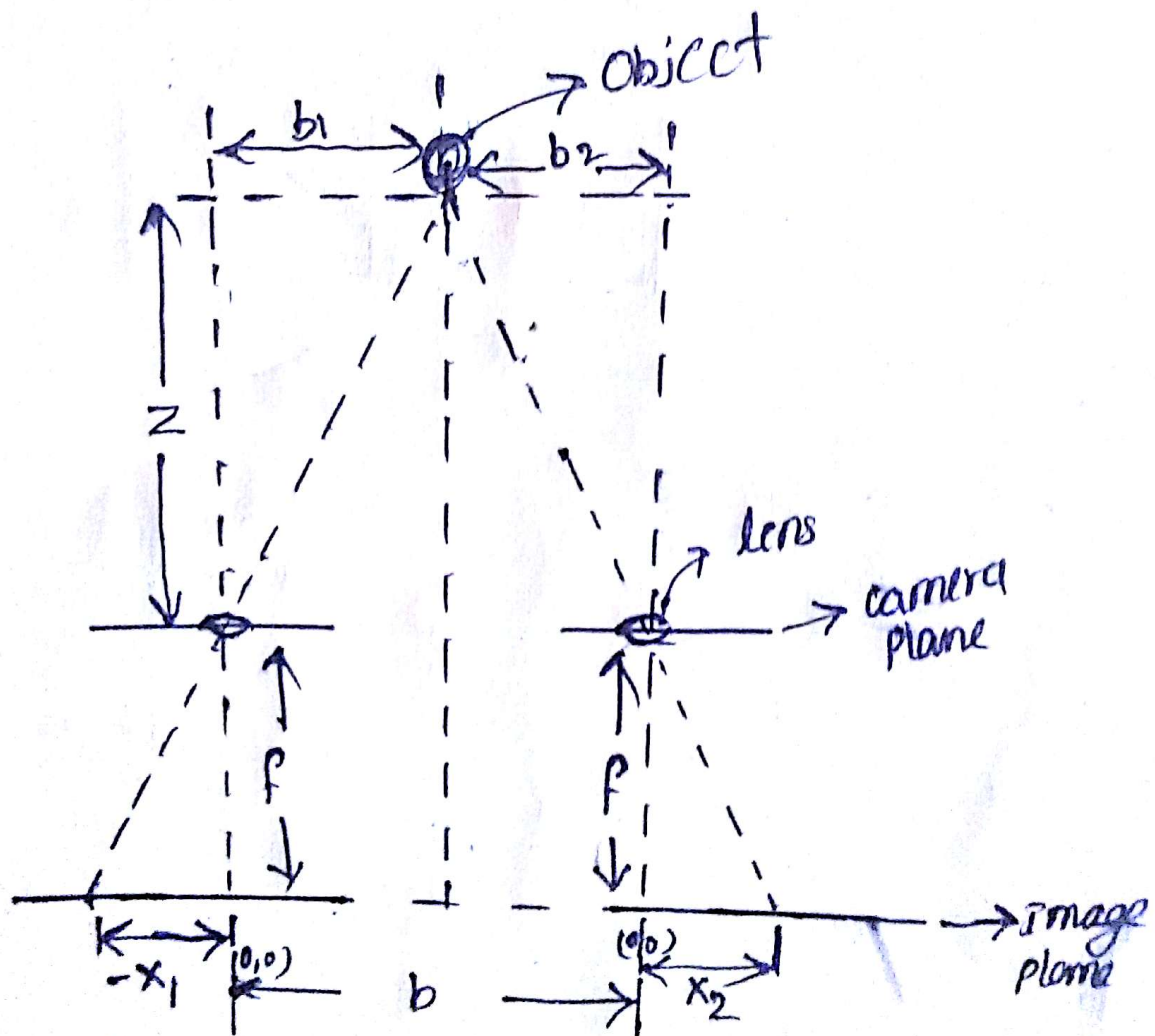 Object
b1
b2
Z
lens
camera
plane
f
f
Image
plane
-x1
(0,0)
b
(0,0)
x2